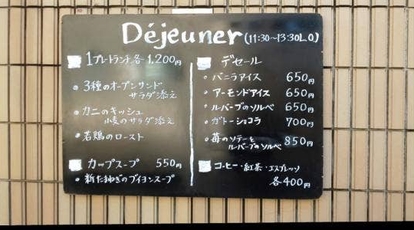 Déjeuner (11:30~13:30L.O)
1プレートランチ 各1,200円
・3種のオープンサンド
サラダ添え
・カニのキッシュ
小麦のサラダ添え
・若鶏のロースト
カップスープ 550円
・新たまねぎのブイヨンスープ
デセール
・バニラアイス 650円
・アーモンドアイス 650円
・ルバーブのソルベ 650円
・ガトーショコラ 700円
・苺のソテーと
ルバーブのソルベ 850円
コーヒー・紅茶・エスプレッソ
各400円